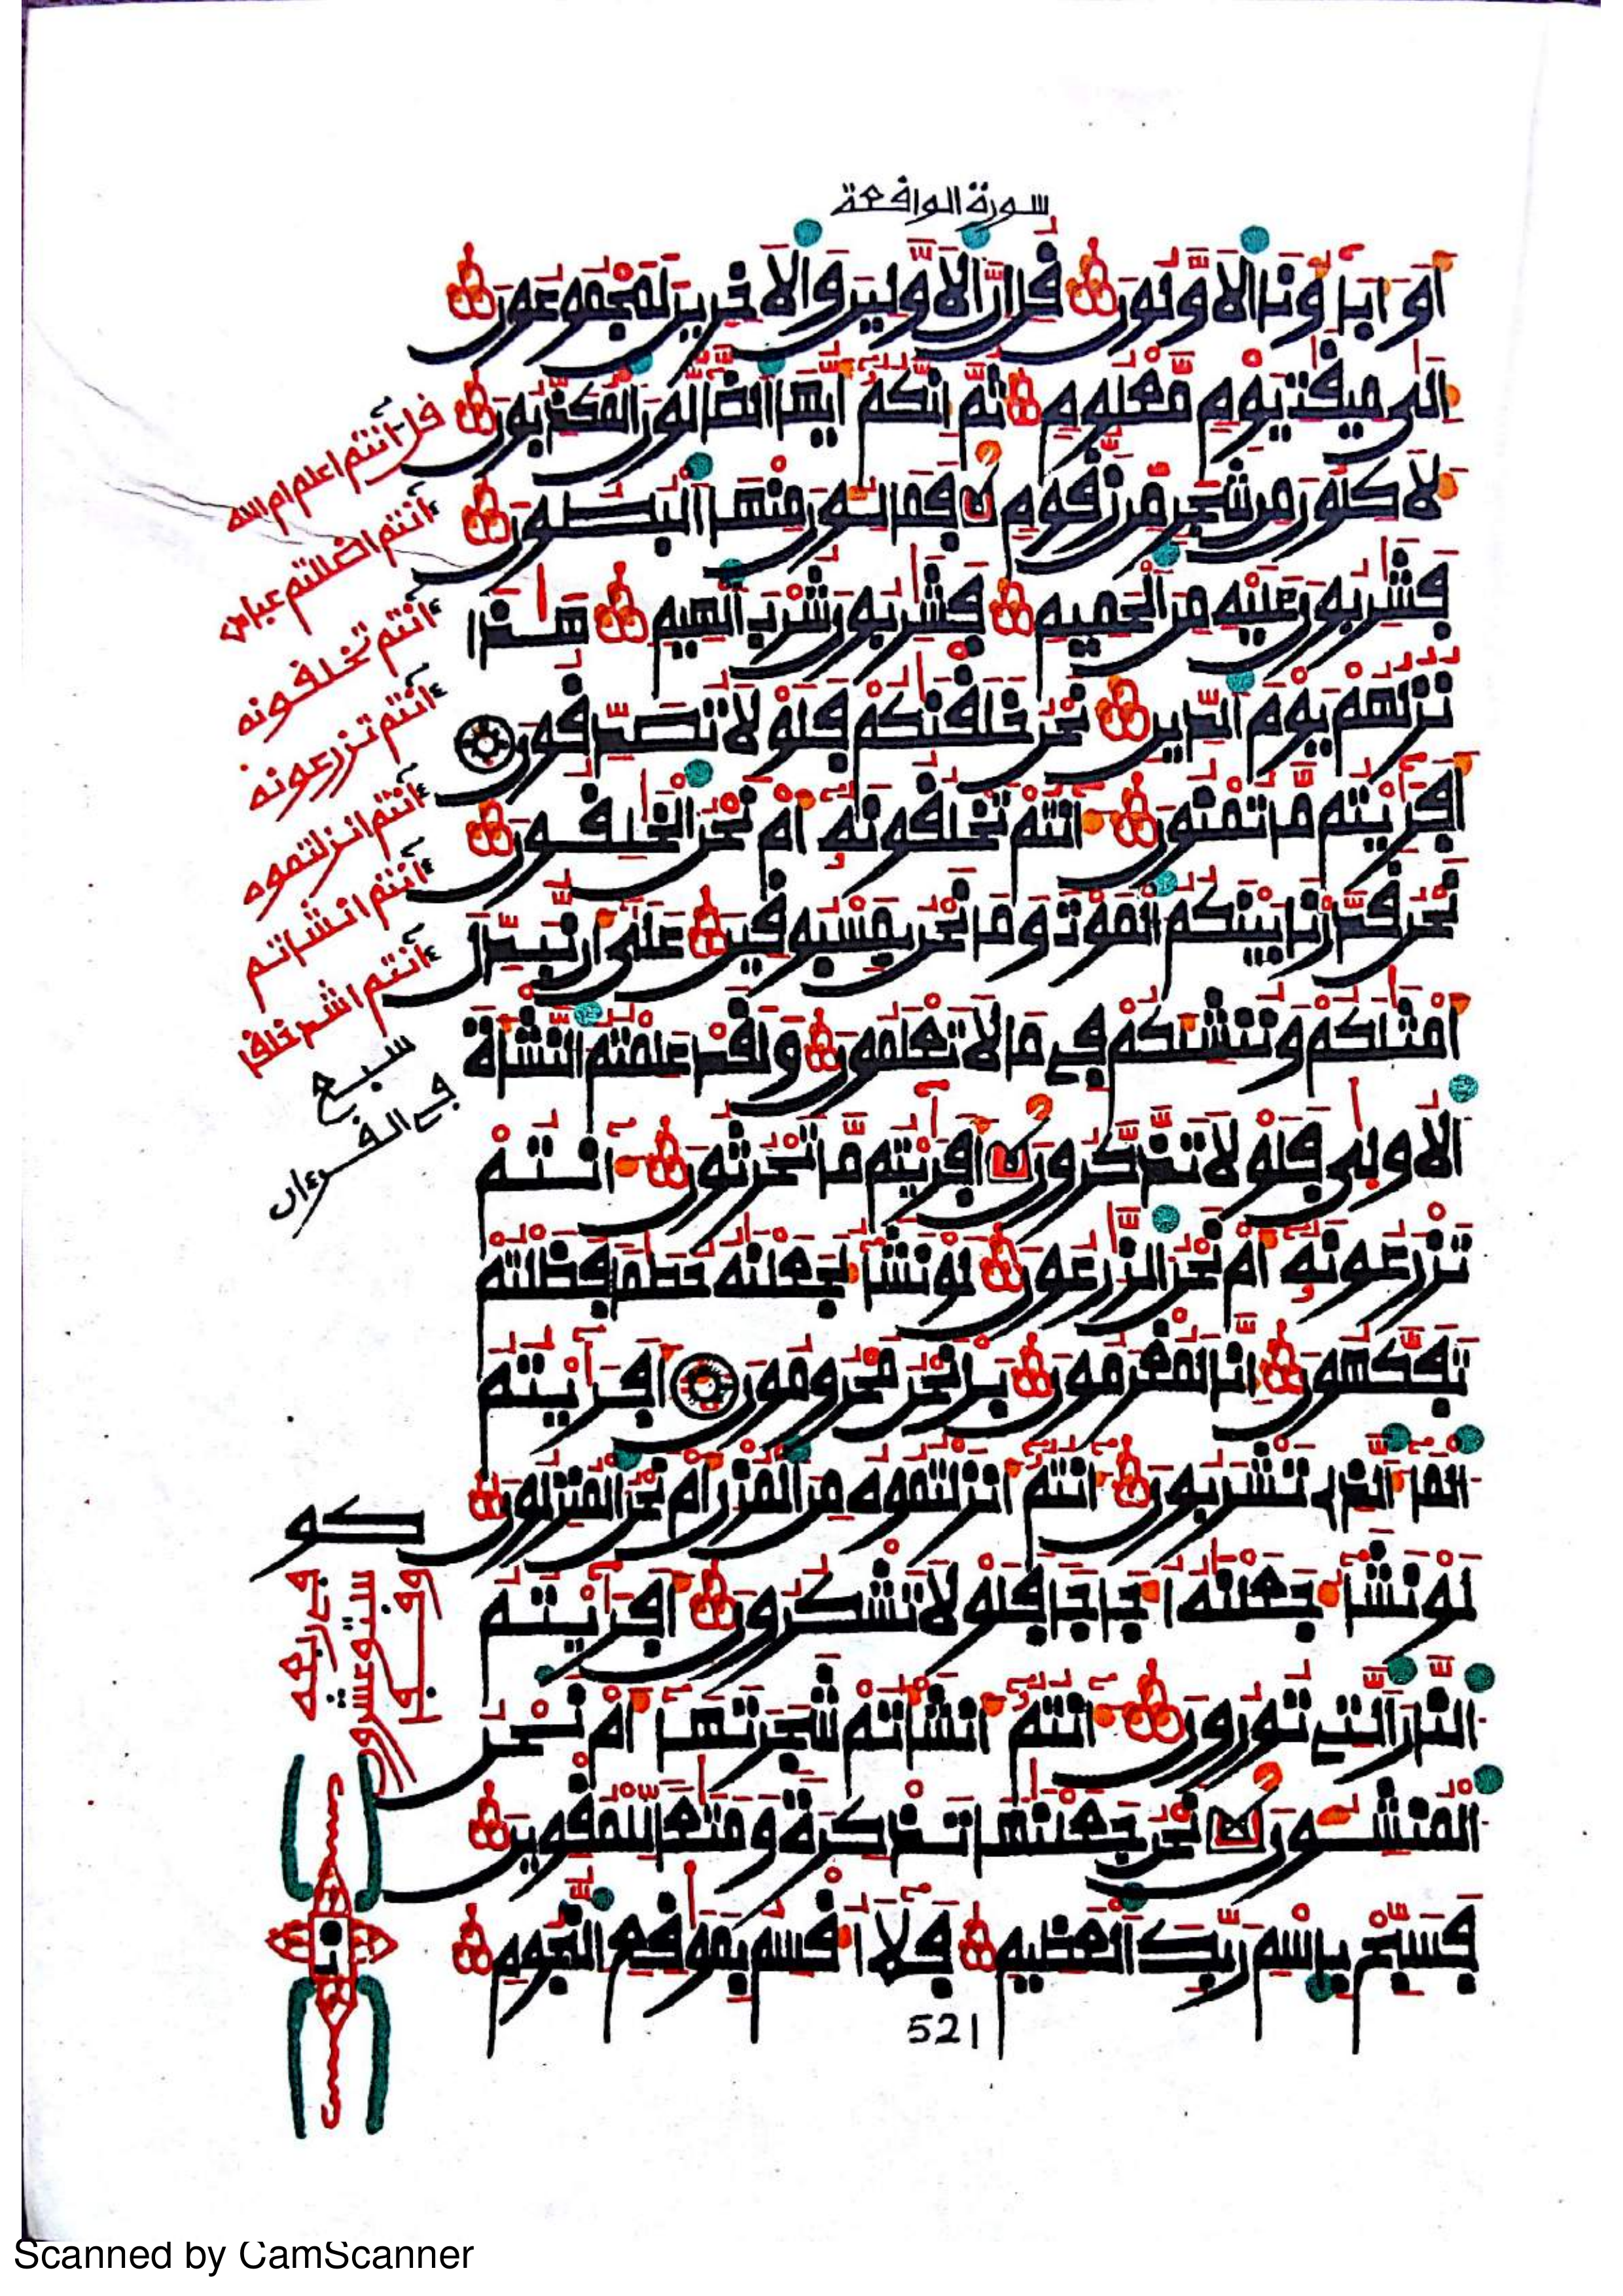 سورة الواقعة
أو ءاباؤنا الأولون قل إن الأولين والأخرين لمجموعون
إلى ميقت يوم معلوم ثم إنكم أيها الضالون المكذبون
لأكلون من شجر من زقوم فمالئون منها البطون
فشربون عليه من الحميم فشربون شرب الهيم هـذا
نزلهم يوم الدين نحن خلقنكم فلولا تصدقون
أفرءيتم ما تمنون ءأنتم تخلقونه أم نحن الخلقون
نحن قدرنا بينكم الموت وما نحن بمسبوقين على أن نبدل
أمثلكم وننشئكم في ما لا تعلمون ولقد علمتم النشأة
الأولى فلولا تذكرون أفرءيتم ما تحرثون ءأنتم
تزرعونه أم نحن الزرعون لو نشاء لجعلنه حطما فظلتم
تفكهون إنا لمغرمون بل نحن محرومون أفرءيتم
الماء الذي تشربون ءأنتم أنزلتموه من المزن أم نحن المنزلون
لو نشاء جعلنه أجاجا فلولا تشكرون أفرءيتم
النار التي تورون ءأنتم أنشأتم شجرتها أم نحن
المنشئون نحن جعلنها تذكرة ومتعا للمقوين
فسبح باسم ربك العظيم فلا أقسم بموقع النجوم
521
قل ءأنتم أعلم أم الله
ءأنتم أضللتم عبادي
ءأنتم تخلقونه
ءأنتم تزرعونه
ءأنتم أنزلتموه
ءأنتم أنشأتم
ءأنتم أشد خلقا
سبع
في القرءان
Scanned by CamScanner